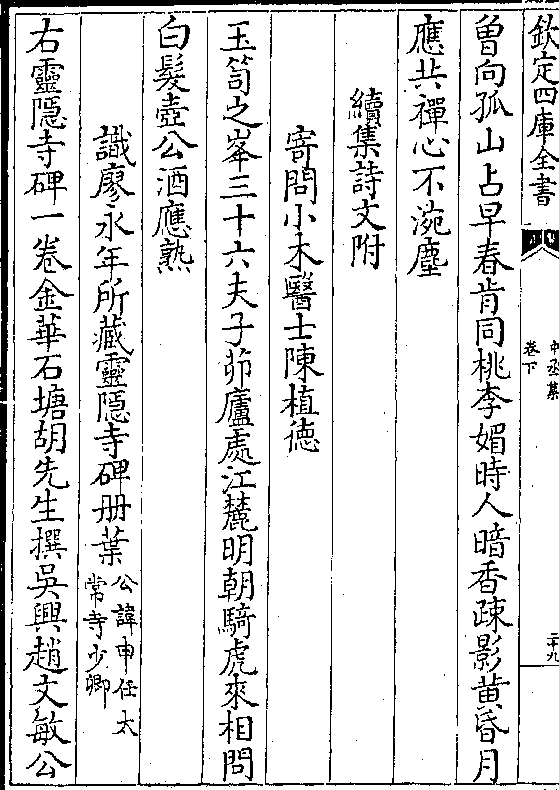 欽定四庫全書
中丞集
卷下
二十九
曽向孤山占早春肯同桃李媚時人暗香疎影黄昏月
應共禪心不涴塵
續集詩文附
寄問小木醫士陳植徳
玉笥之峯三十六夫子茆廬處江麓明朝騎虎來相問
白髮壺公酒應熟
識廖永年所藏靈隠寺碑册葉公諱申任太常寺少卿
右靈隠寺碑一卷金華石塘胡先生撰吳興趙文敏公